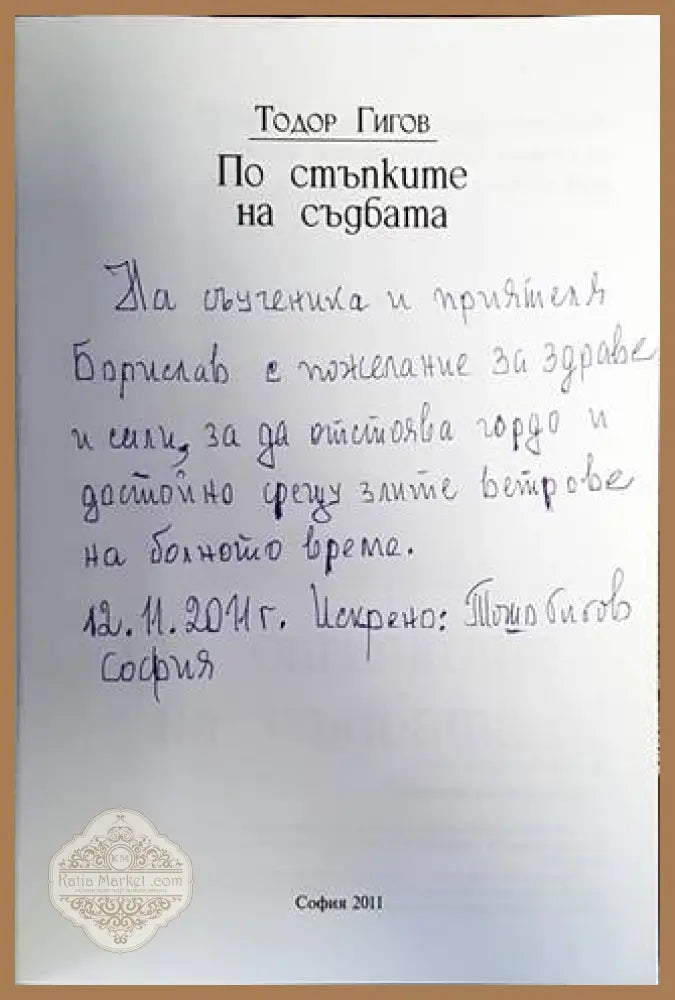 Тодор Гигов
По стъпките
на съдбата
На съученика и приятеля
Борислав с пожелание за здраве
и сили, за да отстоява гордо и
достойно срещу злите ветрове
на болното време.
12.11.2011г. Искрено: Тошо Гигов
София
KM
Katia Market .com
София 2011